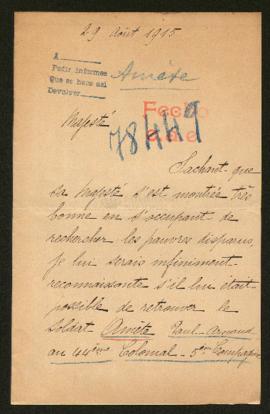 29 Août 1915
A
Pedir informes
Que se hace asi
Devolver
Amète
Fecho
Majesté
78449
Sachant que
Sa Majesté s'est montrée très
bonne en s'occupant de
rechercher les pauvres disparus,
je lui serais infiniment
reconnaissante s'il lui était
possible de retrouver le
soldat Amète Paul-Arnaud
au 44ème Colonial - 5ème Compagnie